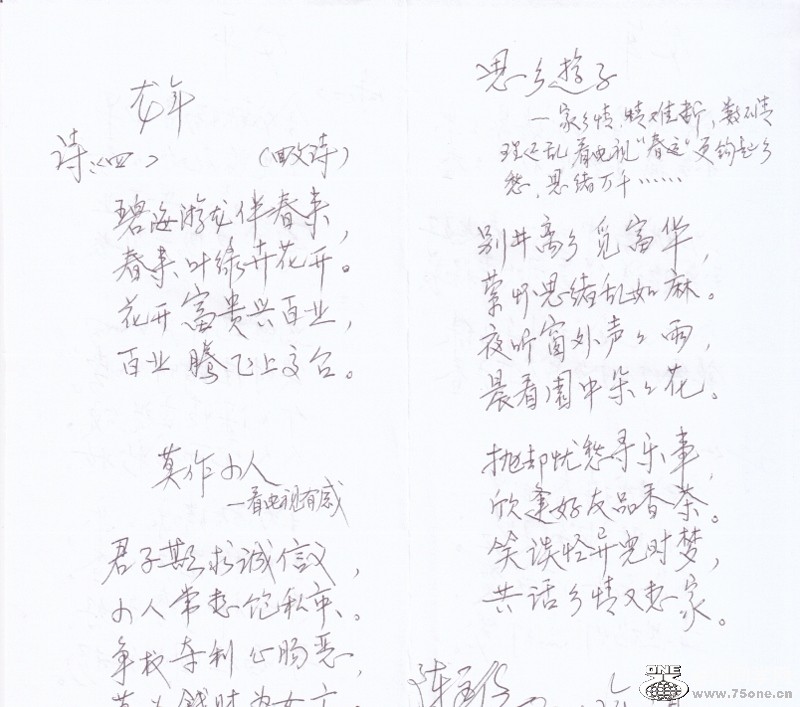 龙年
诗(四)
碧海游龙伴春来，
春来叶绿卉花开。
花开富贵兴百业，
百业腾飞上高台。
莫作小人
—看电视有感
君子期求诚信义，
小人常想饱私囊。
争权夺利心肠恶，
思乡游子
—家乡情，情难断，数不清
理还乱，看电视“春运”更钩起乡
愁，思绪万千……
别井离乡觅富华，
思绪乱如麻。
夜听窗外声々雨，
晨看园中朵々花。
抛却忧愁寻乐事，
欣逢好友品香茶。
笑谈怪异儿时梦，
共话乡情又想家。
ONE
www.75one.cn